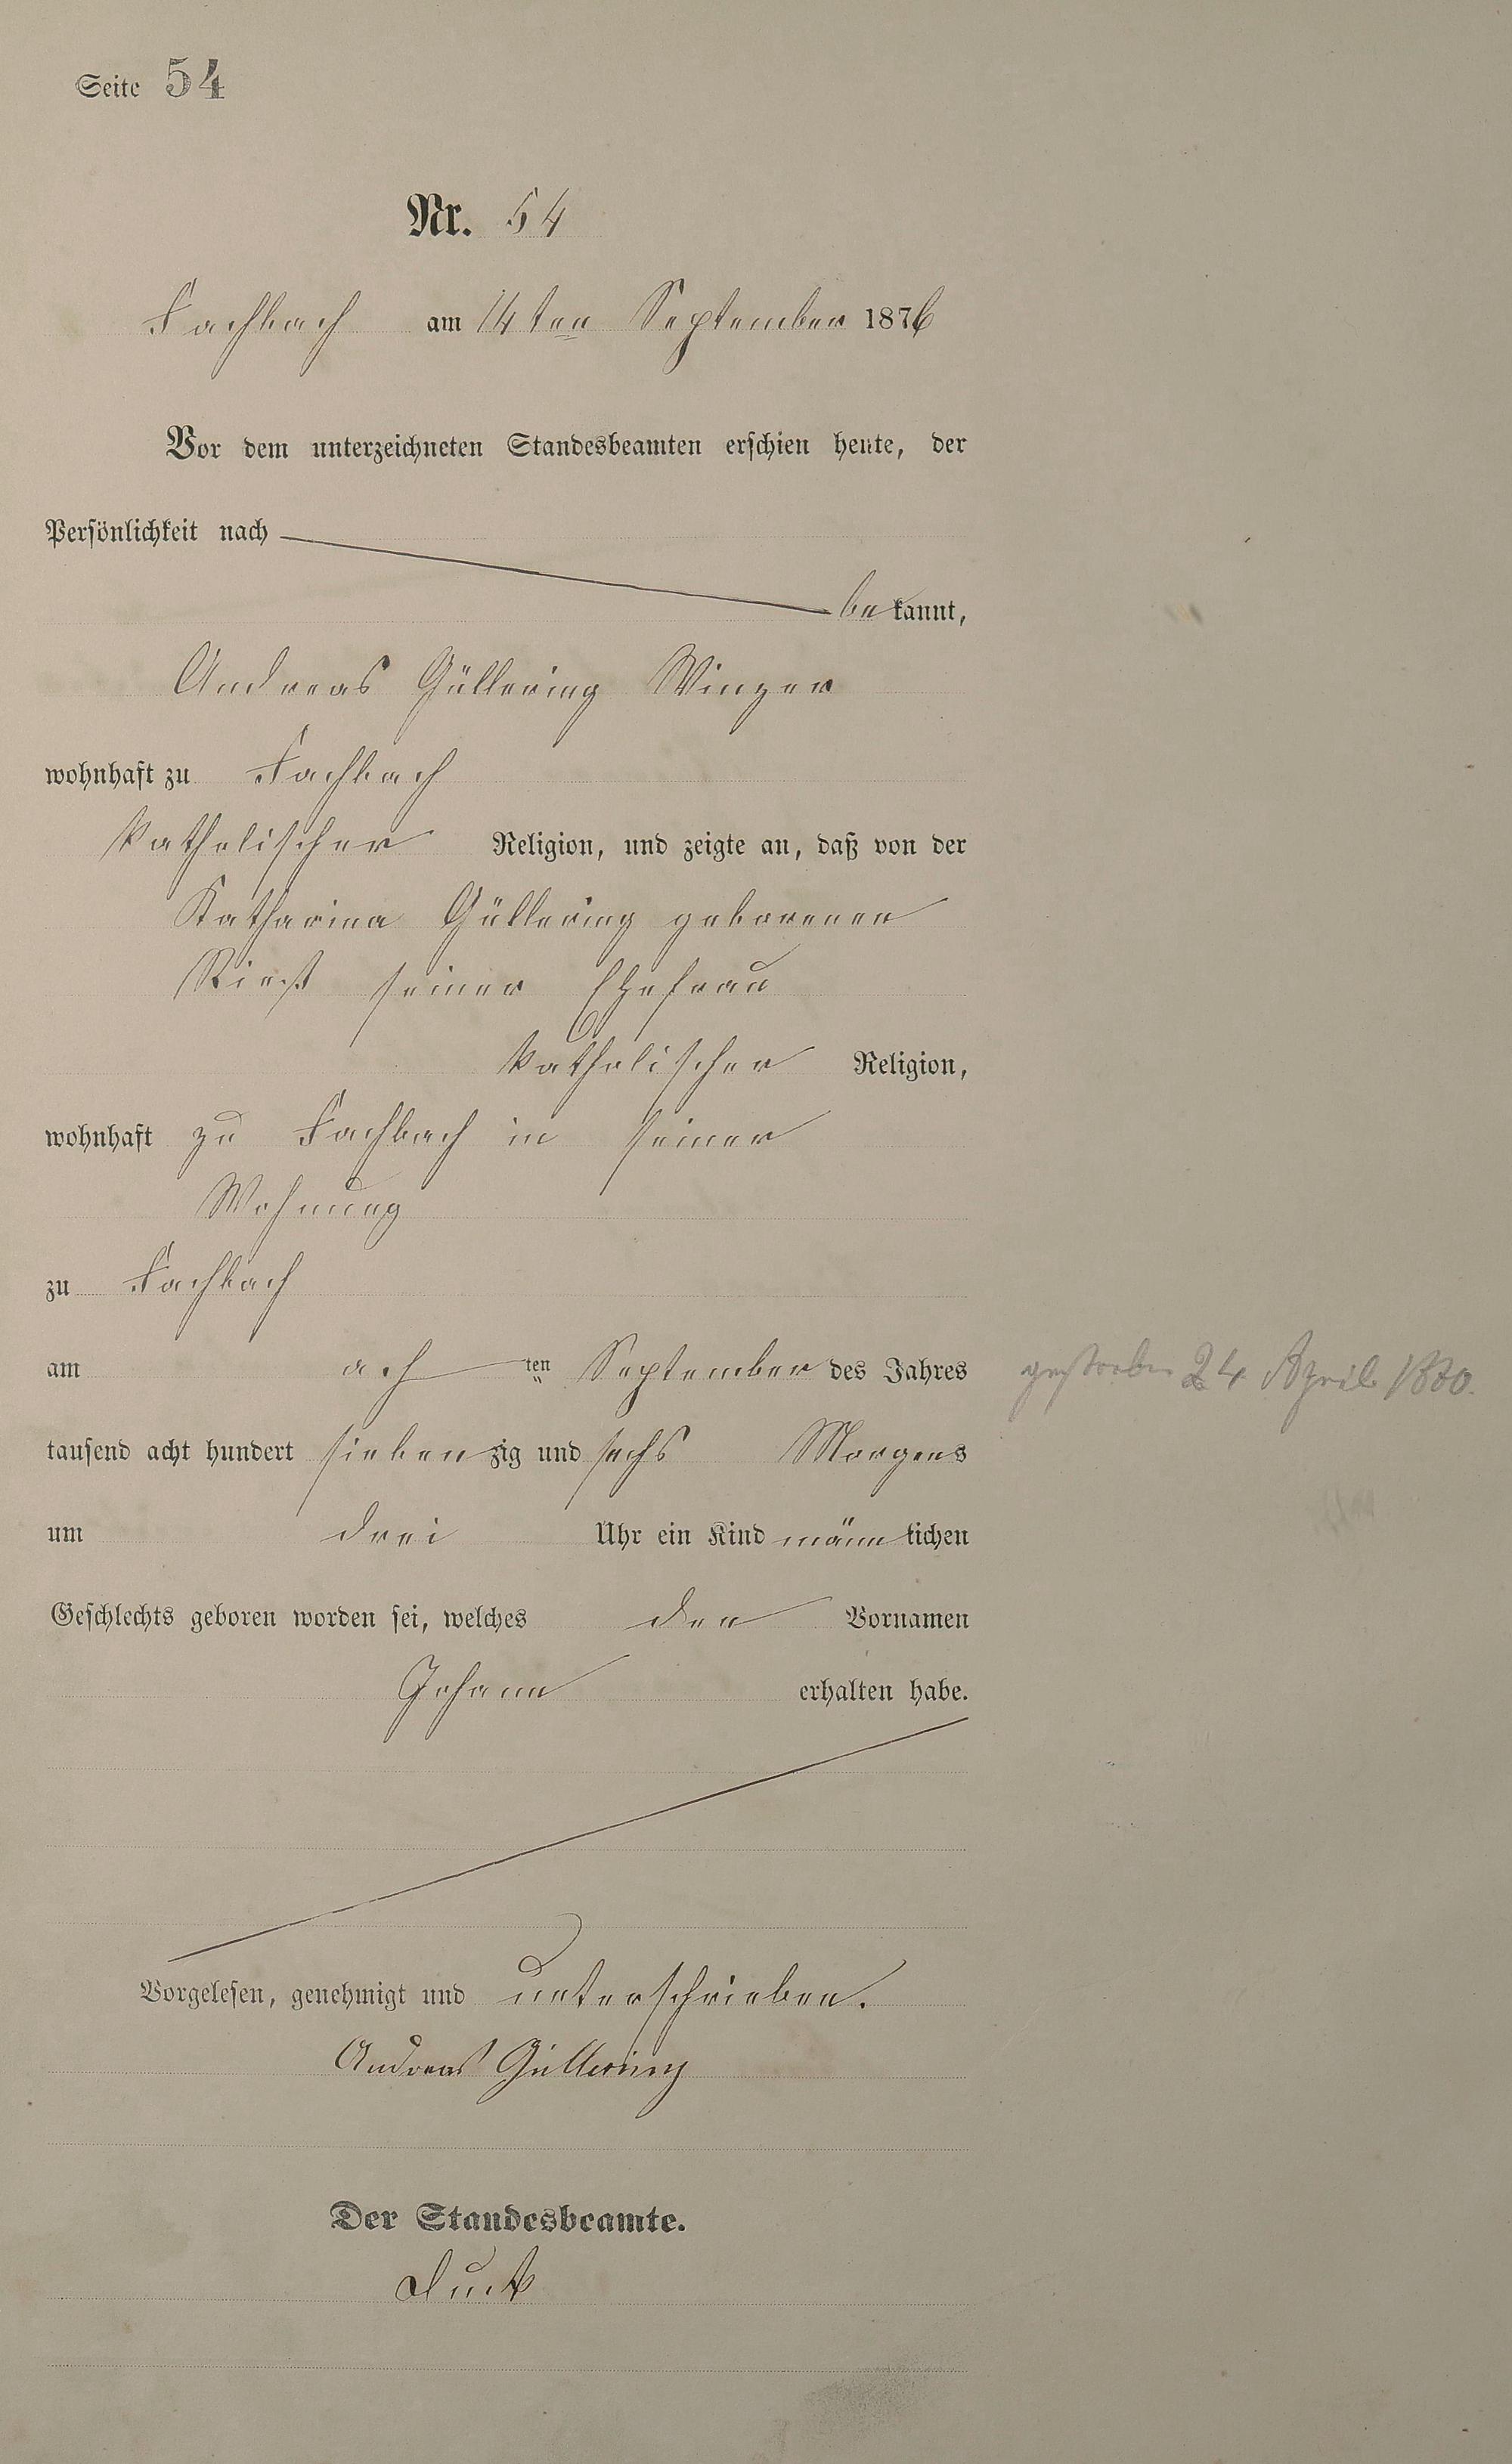 Seite 54
Nr. 54
Fachbach am 14ten September 1876
Vor dem unterzeichneten Standesbeamten erschien heute, der
Persönlichkeit nach
bekannt,
Andreas Güllering Winzer
wohnhaft zu Fachbach
katholischer Religion, und zeigte an, daß von der
Katharina Güllering geborenen
seiner Ehefrau
katholischer Religion,
wohnhaft zu Fachbach in seiner
Wohnung
zu Fachbach
am ach ten September des Jahres
gestorben 24 April 1880.
tausend acht hundert siebenzig und sechs Morgens
um drei Uhr ein Kind männlichen
Geschlechts geboren worden sei, welches den Vornamen
Johann erhalten habe.
Vorgelesen, genehmigt und unterschrieben.
Andreas Güllering
Der Standesbeamte.